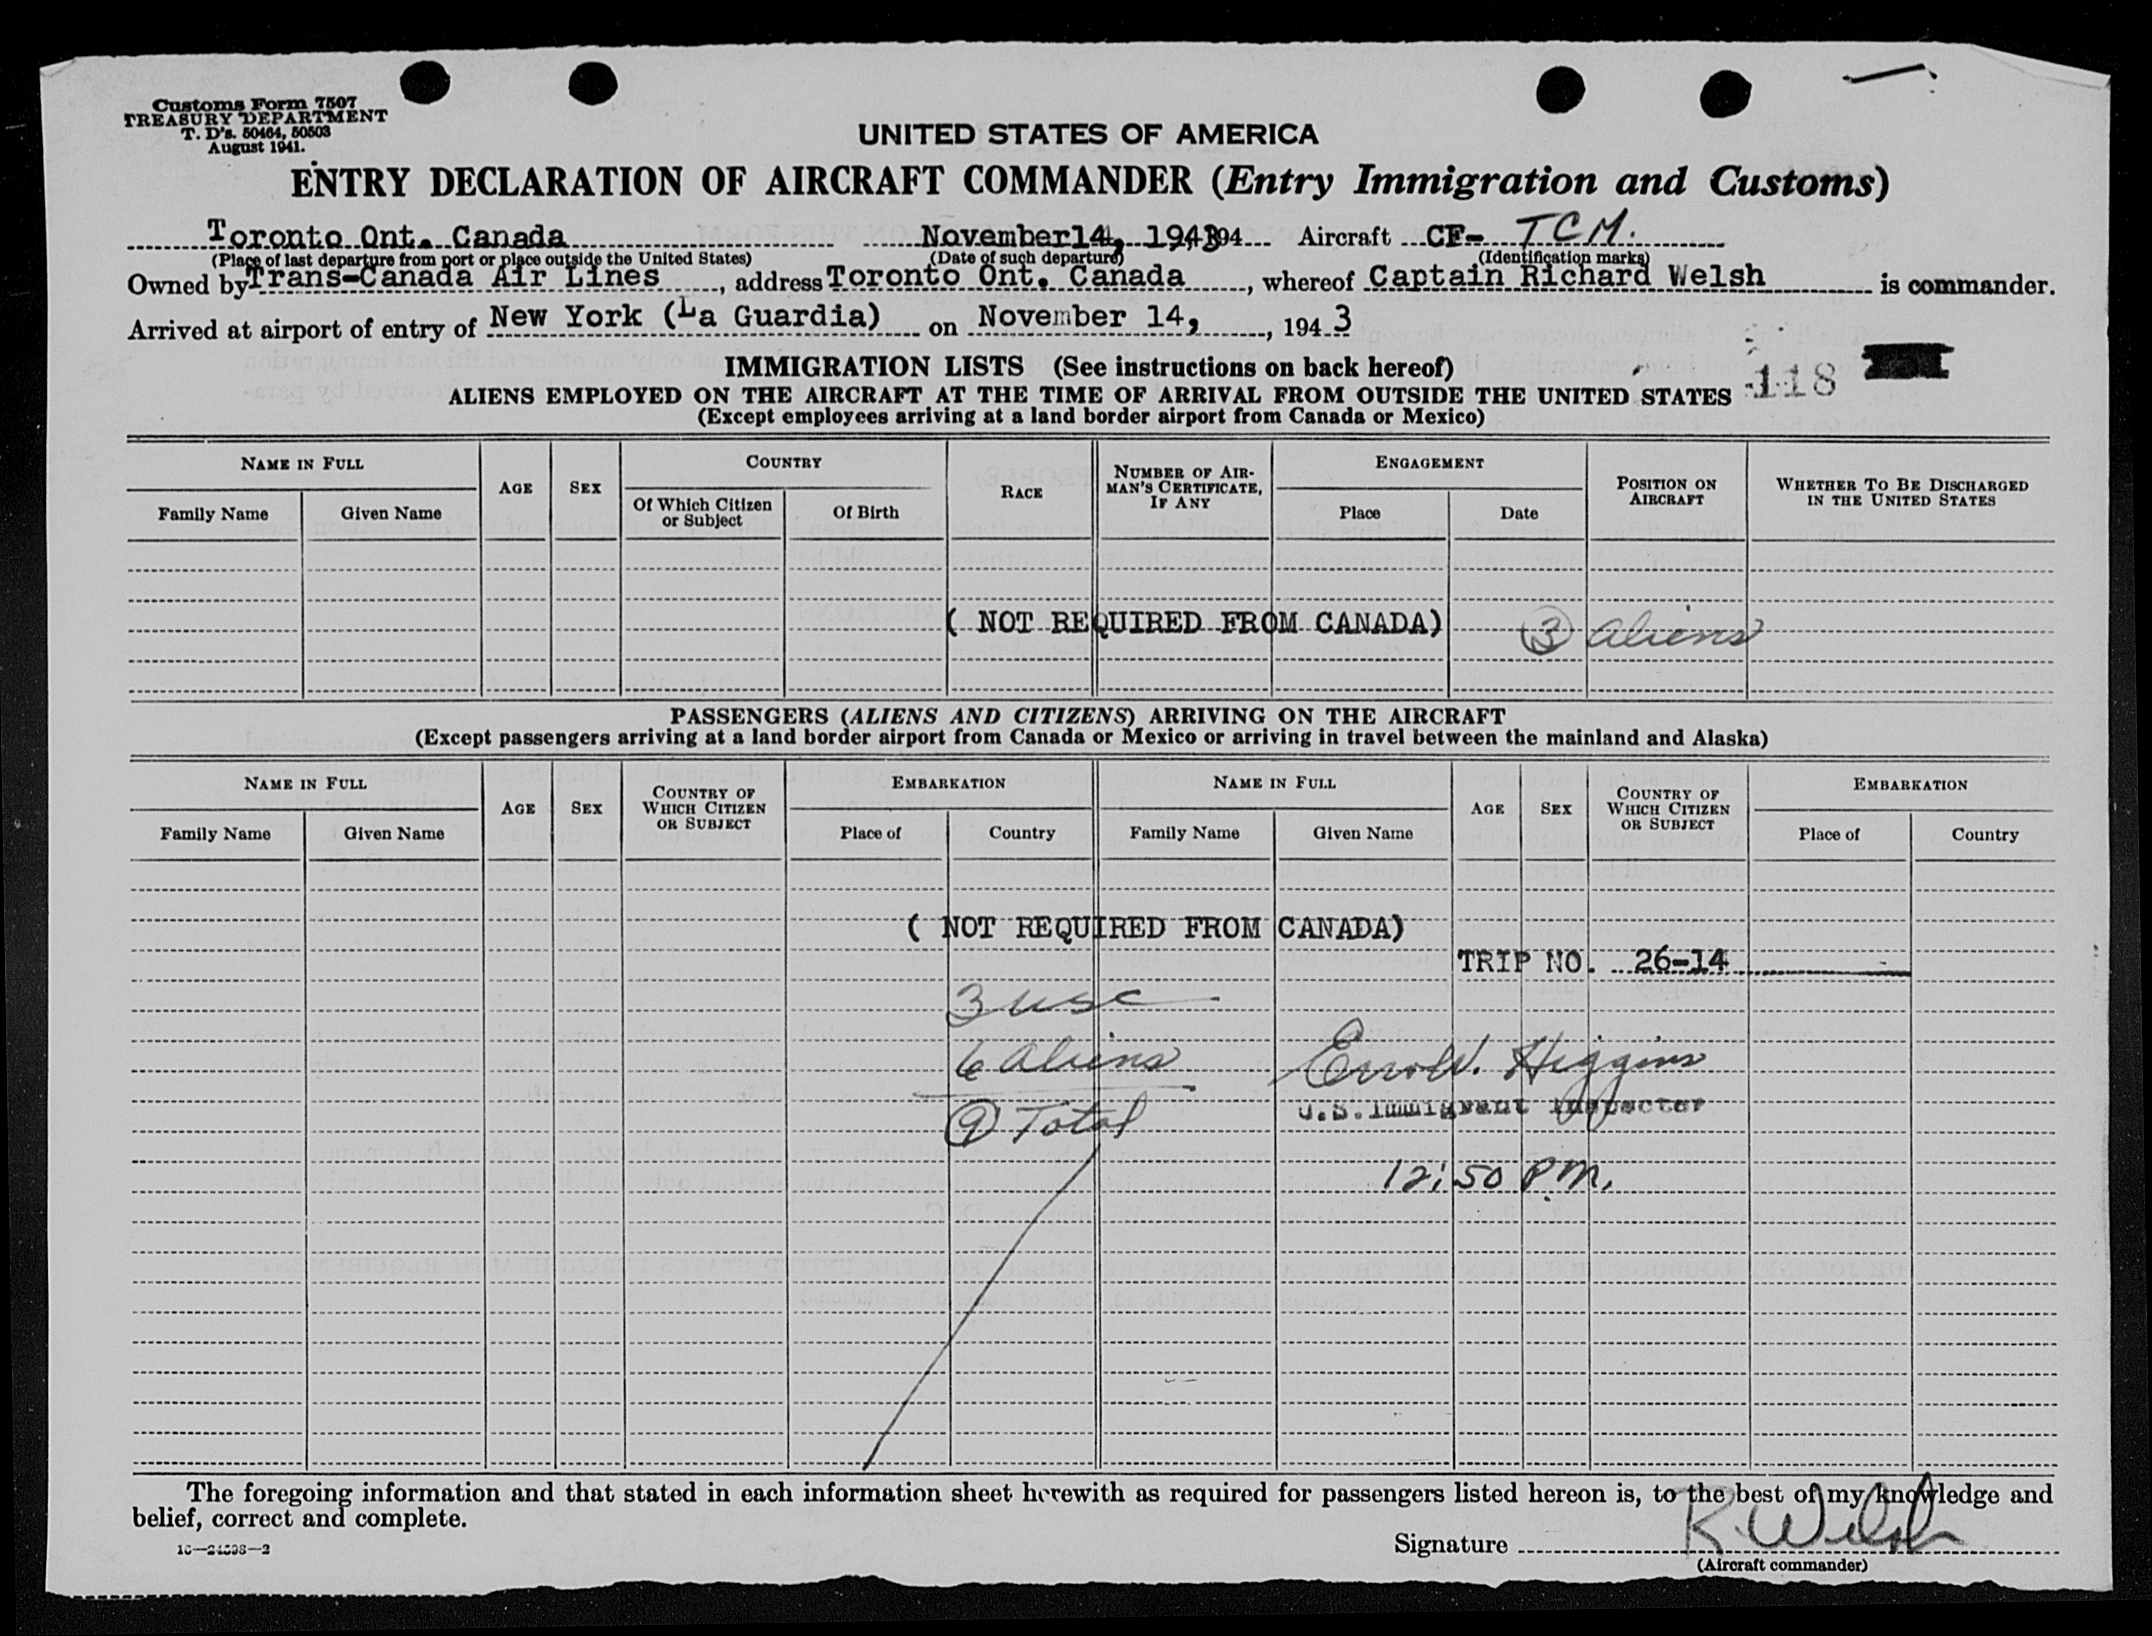 Customs Form 7507
TREASURY DEPARTMENT
T. D's. 50464, 50503
August 1941.
UNITED STATES OF AMERICA
ENTRY DECLARATION OF AIRCRAFT COMMANDER (Entry Immigration and Customs)
Toronto Ont. Canada November 14, 1943 194 Aircraft CF- TCM.
(Place of last departure from port or place outside the United States) (Date of such departure) (Identification marks)
Owned by Trans-Canada Air Lines, address Toronto Ont. Canada, whereof Captain Richard Welsh is commander.
Arrived at airport of entry of New York (La Guardia) on November 14, , 194 3
IMMIGRATION LISTS (See instructions on back hereof)
ALIENS EMPLOYED ON THE AIRCRAFT AT THE TIME OF ARRIVAL FROM OUTSIDE THE UNITED STATES 118
(Except employees arriving at a land border airport from Canada or Mexico)
NAME IN FULL AGE SEX COUNTRY RACE NUMBER OF AIRMAN'S CERTIFICATE, IF ANY ENGAGEMENT POSITION ON AIRCRAFT WHETHER TO BE DISCHARGED IN THE UNITED STATES
Family Name Given Name Of Which Citizen or Subject Of Birth Place Date
( NOT REQUIRED FROM CANADA) 3 aliens
PASSENGERS (ALIENS AND CITIZENS) ARRIVING ON THE AIRCRAFT
(Except passengers arriving at a land border airport from Canada or Mexico or arriving in travel between the mainland and Alaska)
NAME IN FULL AGE SEX COUNTRY OF WHICH CITIZEN OR SUBJECT EMBARKATION NAME IN FULL AGE SEX COUNTRY OF WHICH CITIZEN OR SUBJECT EMBARKATION
Family Name Given Name Place of Country Family Name Given Name Place of Country
( NOT REQUIRED FROM CANADA)
TRIP NO. 26-14
3 usc
6 aliens Higgins
9 Total U.S. Immigrant Inspector
12:50 P.M.
The foregoing information and that stated in each information sheet herewith as required for passengers listed hereon is, to the best of my knowledge and
belief, correct and complete.
Signature R. Welsh
(Aircraft commander)